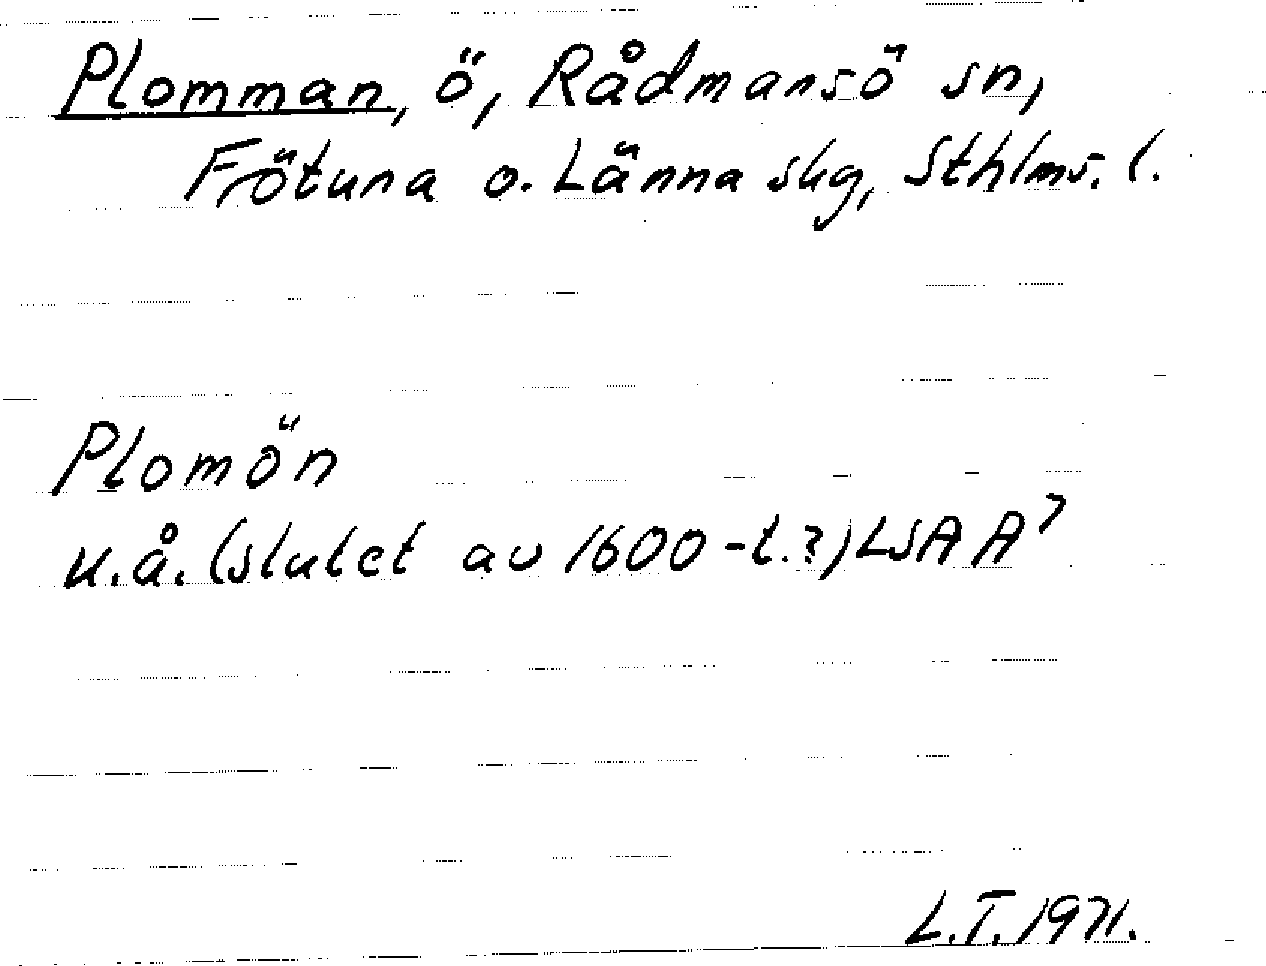 Plomman, ö, Rådmansö sn,
Frötuna o. Länna skg, Sthlms. l.
Plomön
u.å. (slutet av 1600-t.?) LSA A7
L.T. 1971.